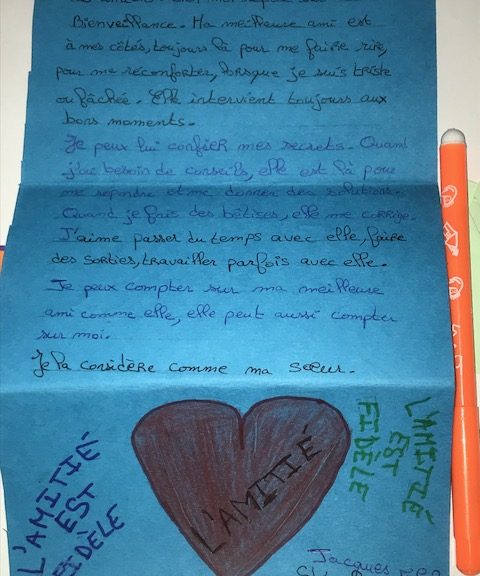 Bienveillance. Ma meilleure ami est
à mes côtés, toujours là pour me faire rire,
pour me réconforter, lorsque je suis triste
ou fâchée. Elle intervient toujours aux
bons moments.
Je peux lui confier mes secrets. Quand
j'ai besoin de conseils, elle est là pour
me repondre et me donner des solutions.
Quand je fais des bêtises, elle me corrige.
J'aime passer du temps avec elle, faire
des sorties, travailler parfois avec elle.
Je peux compter sur ma meilleure
ami comme elle, elle peut aussi compter
sur moi.
Je la considère comme ma sœur.
L'AMITIÉ
EST
FIDÈLE
L'AMITIÉ
L'AMITIÉ
EST
FIDÈLE
Jacques